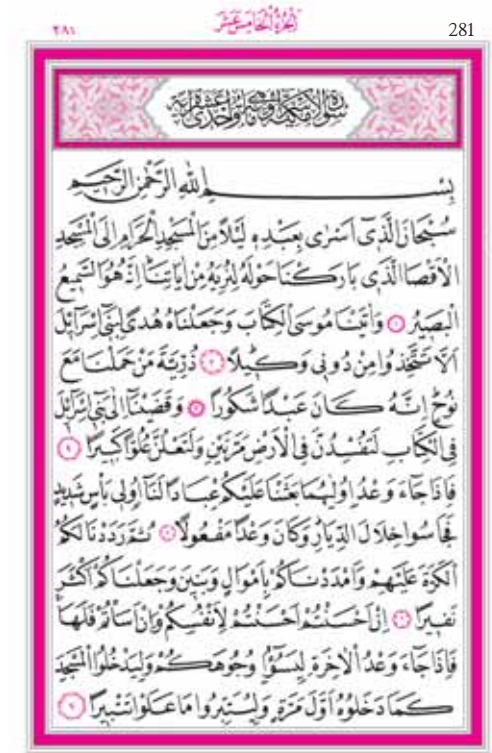 ٢٨١ اَلْجُزْءُ الْخَامِسَ عَشَرَ 281
سُورَةُ الْاِسْرَاءِ مَكِّيَّةٌ وَهِيَ مِائَةٌ وَاِحْدٰى عَشْرَةَ اٰيَةً
بِسْمِ اللّٰهِ الرَّحْمٰنِ الرَّحِيمِ
سُبْحَانَ الَّذٓي اَسْرٰى بِعَبْدِهٖ لَيْلًا مِنَ الْمَسْجِدِ الْحَرَامِ اِلَى الْمَسْجِدِ
الْاَقْصَا الَّذٖي بَارَكْنَا حَوْلَهُ لِنُرِيَهُ مِنْ اٰيَاتِنَا اِنَّهُ هُوَ السَّمٖيعُ
الْبَصٖيرُ ١ وَاٰتَيْنَا مُوسَى الْكِتَابَ وَجَعَلْنَاهُ هُدًى لِبَنٖٓي اِسْرَٓائٖلَ
اَلَّا تَتَّخِذُوا مِنْ دُونٖي وَكٖيلًا ٢ ذُرِّيَّةَ مَنْ حَمَلْنَا مَعَ
نُوحٍ اِنَّهُ كَانَ عَبْدًا شَكُورًا ٣ وَقَضَيْنَٓا اِلٰى بَنٖٓي اِسْرَٓائٖلَ
فِي الْكِتَابِ لَتُفْسِدُنَّ فِي الْاَرْضِ مَرَّتَيْنِ وَلَتَعْلُنَّ عُلُوًّا كَبٖيرًا ٤
فَاِذَا جَٓاءَ وَعْدُ اُولٰيهُمَا بَعَثْنَا عَلَيْكُمْ عِبَادًا لَنَٓا اُولٖي بَاْسٍ شَدٖيدٍ
فَجَاسُوا خِلَالَ الدِّيَارِ وَكَانَ وَعْدًا مَفْعُولًا ٥ ثُمَّ رَدَدْنَا لَكُمُ
الْكَرَّةَ عَلَيْهِمْ وَاَمْدَدْنَاكُمْ بِاَمْوَالٍ وَبَنٖينَ وَجَعَلْنَاكُمْ اَكْثَرَ
نَفٖيرًا ٦ اِنْ اَحْسَنْتُمْ اَحْسَنْتُمْ لِاَنْفُسِكُمْ وَاِنْ اَسَاْتُمْ فَلَهَا
فَاِذَا جَٓاءَ وَعْدُ الْاٰخِرَةِ لِيَسُٓؤُا وُجُوهَكُمْ وَلِيَدْخُلُوا الْمَسْجِدَ
كَمَا دَخَلُوهُ اَوَّلَ مَرَّةٍ وَلِيُتَبِّرُوا مَا عَلَوْا تَتْبٖيرًا ٧